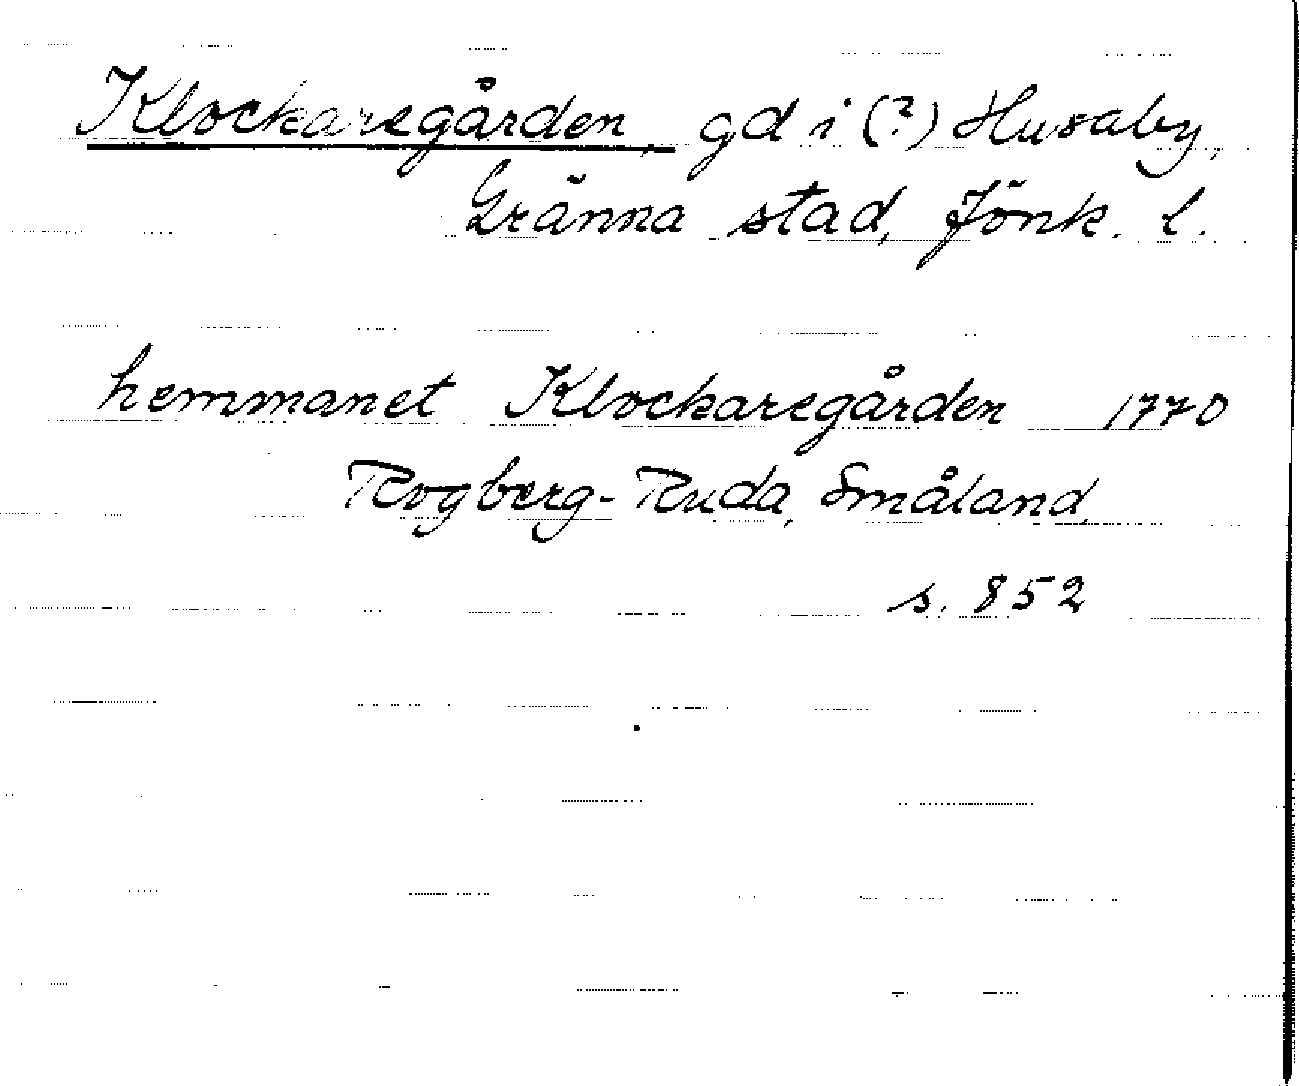 Klockaregården, gd i (?) Husaby,
Gränna stad, Jönk. l.
hemmanet Klockaregården 1770
Rogberg-Ruda, Småland,
s. 852